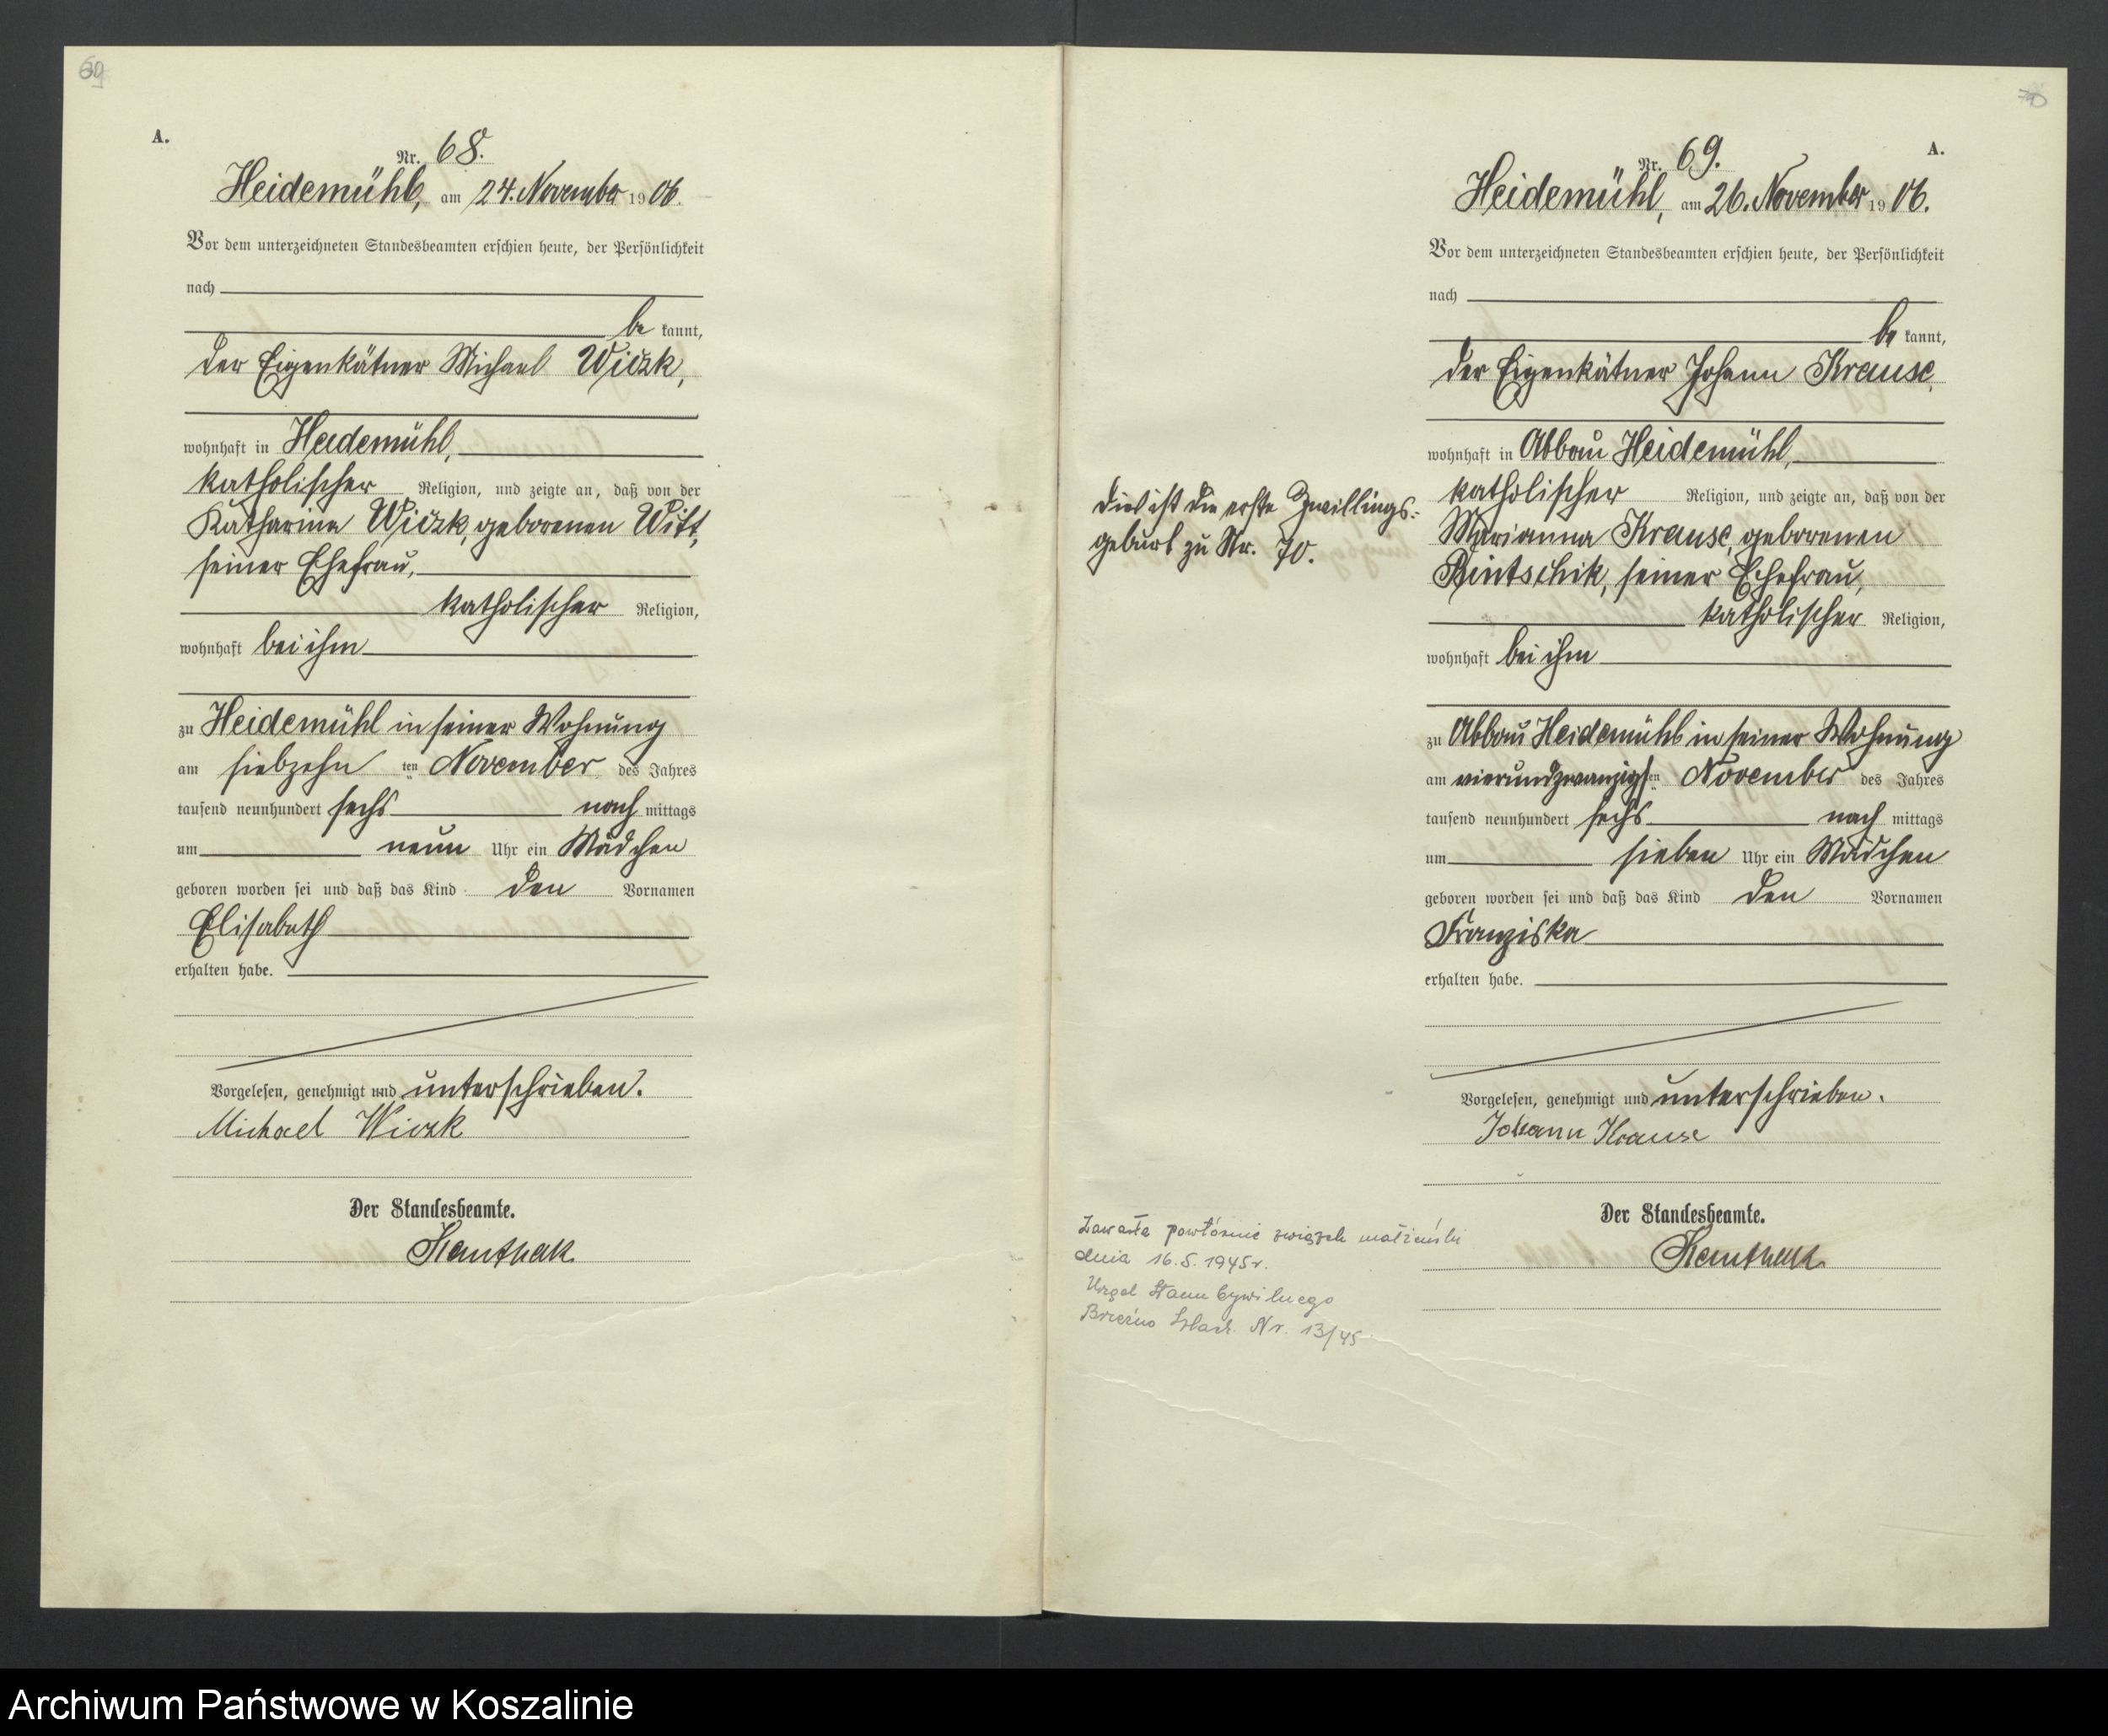 69
A.
Nr. 68.
Heidemühl, am 24. November 1906.
Vor dem unterzeichneten Standesbeamten erschien heute, der Persönlichkeit
nach
be kannt,
der Eigenkätner Michael Wiczk,
wohnhaft in Heidemühl,
katholischer Religion, und zeigte an, daß von der
Katharina Wiczk, geborenen Witt,
seiner Ehefrau,
katholischer Religion,
wohnhaft bei ihm
zu Heidemühl in seiner Wohnung
am siebzehn ten November des Jahres
tausend neunhundert sechs nach mittags
um neun Uhr ein Mädchen
geboren worden sei und daß das Kind den Vornamen
Elisabeth
erhalten habe.
Vorgelesen, genehmigt und unterschrieben.
Michael Wiczk
Der Standesbeamte.
70
A.
Nr. 69.
Heidemühl, am 26. November 1906.
Vor dem unterzeichneten Standesbeamten erschien heute, der Persönlichkeit
nach
be kannt,
der Eigenkätner Johann Krause,
wohnhaft in Abbau Heidemühl,
katholischer Religion, und zeigte an, daß von der
Marianna Krause, geborenen
Rintschik, seiner Ehefrau,
katholischer Religion,
wohnhaft bei ihm
zu Abbau Heidemühl in seiner Wohnung
am vierundzwanzigsten November des Jahres
tausend neunhundert sechs nach mittags
um sieben Uhr ein Mädchen
geboren worden sei und daß das Kind den Vornamen
Franziska
erhalten habe.
Vorgelesen, genehmigt und unterschrieben.
Johann Krause
Der Standesbeamte.
Dies ist die erste Zwillings-
geburt zu Nr. 70.
Zawarła powtórnie związek małżeński
dnia 16.5.1945r.
Urząd Stanu Cywilnego
Brzeźno Szlach. Nr. 13/45
Archiwum Państwowe w Koszalinie